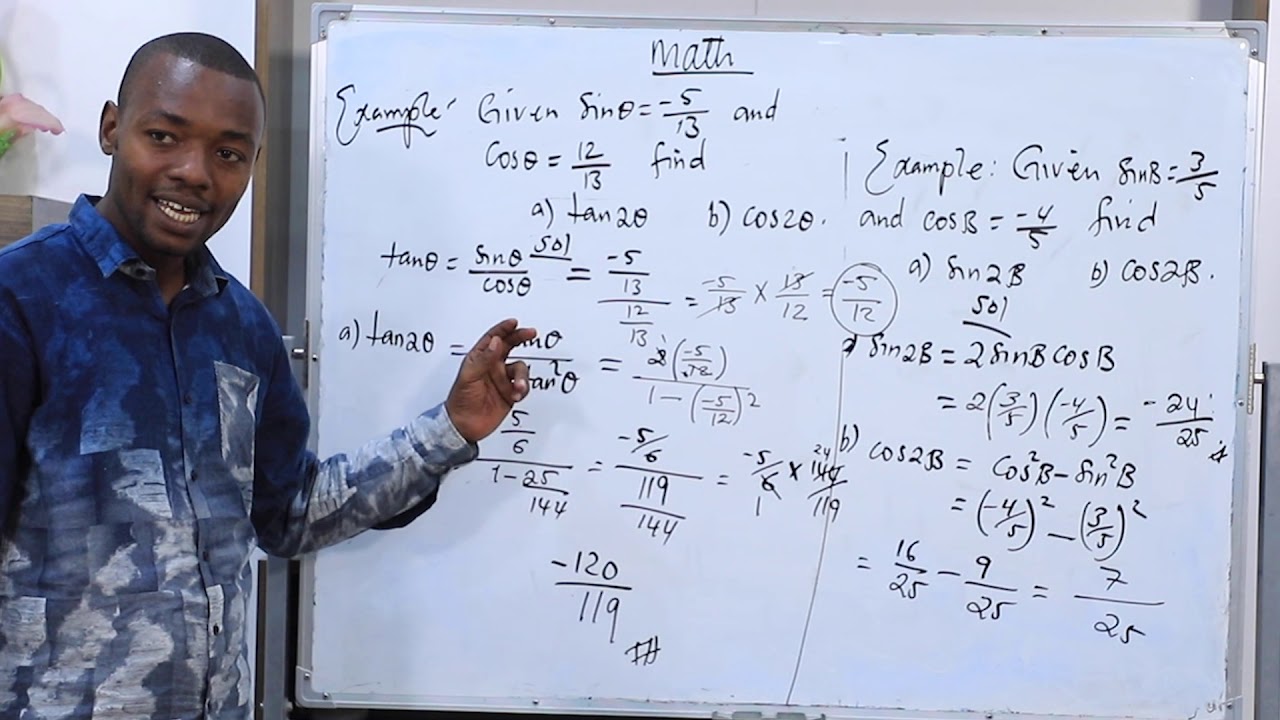 Math
Example: Given sinθ = -5/13 and
cosθ = 12/13 find
a) tan2θ b) cos2θ.
sol
tanθ = sinθ/cosθ = (-5/13)/(12/13) = -5/13 × 13/12 = -5/12
a) tan2θ = anθ/tan²θ = 2(-5/12)/(1-(-5/12)²)
5/6/(1-25/144) = (-5/6)/(119/144) = -5/6 1 × 24 144/119
-120/119
Example: Given sinB = 3/5
and cosB = -4/5 find
a) sin2B b) cos2B.
sol
sin2B = 2sinBcosB
= 2(3/5)(-4/5) = -24/25
b) cos2B = cos²B-sin²B
= (-4/5)² - (3/5)²
= 16/25 - 9/25 = 7/25